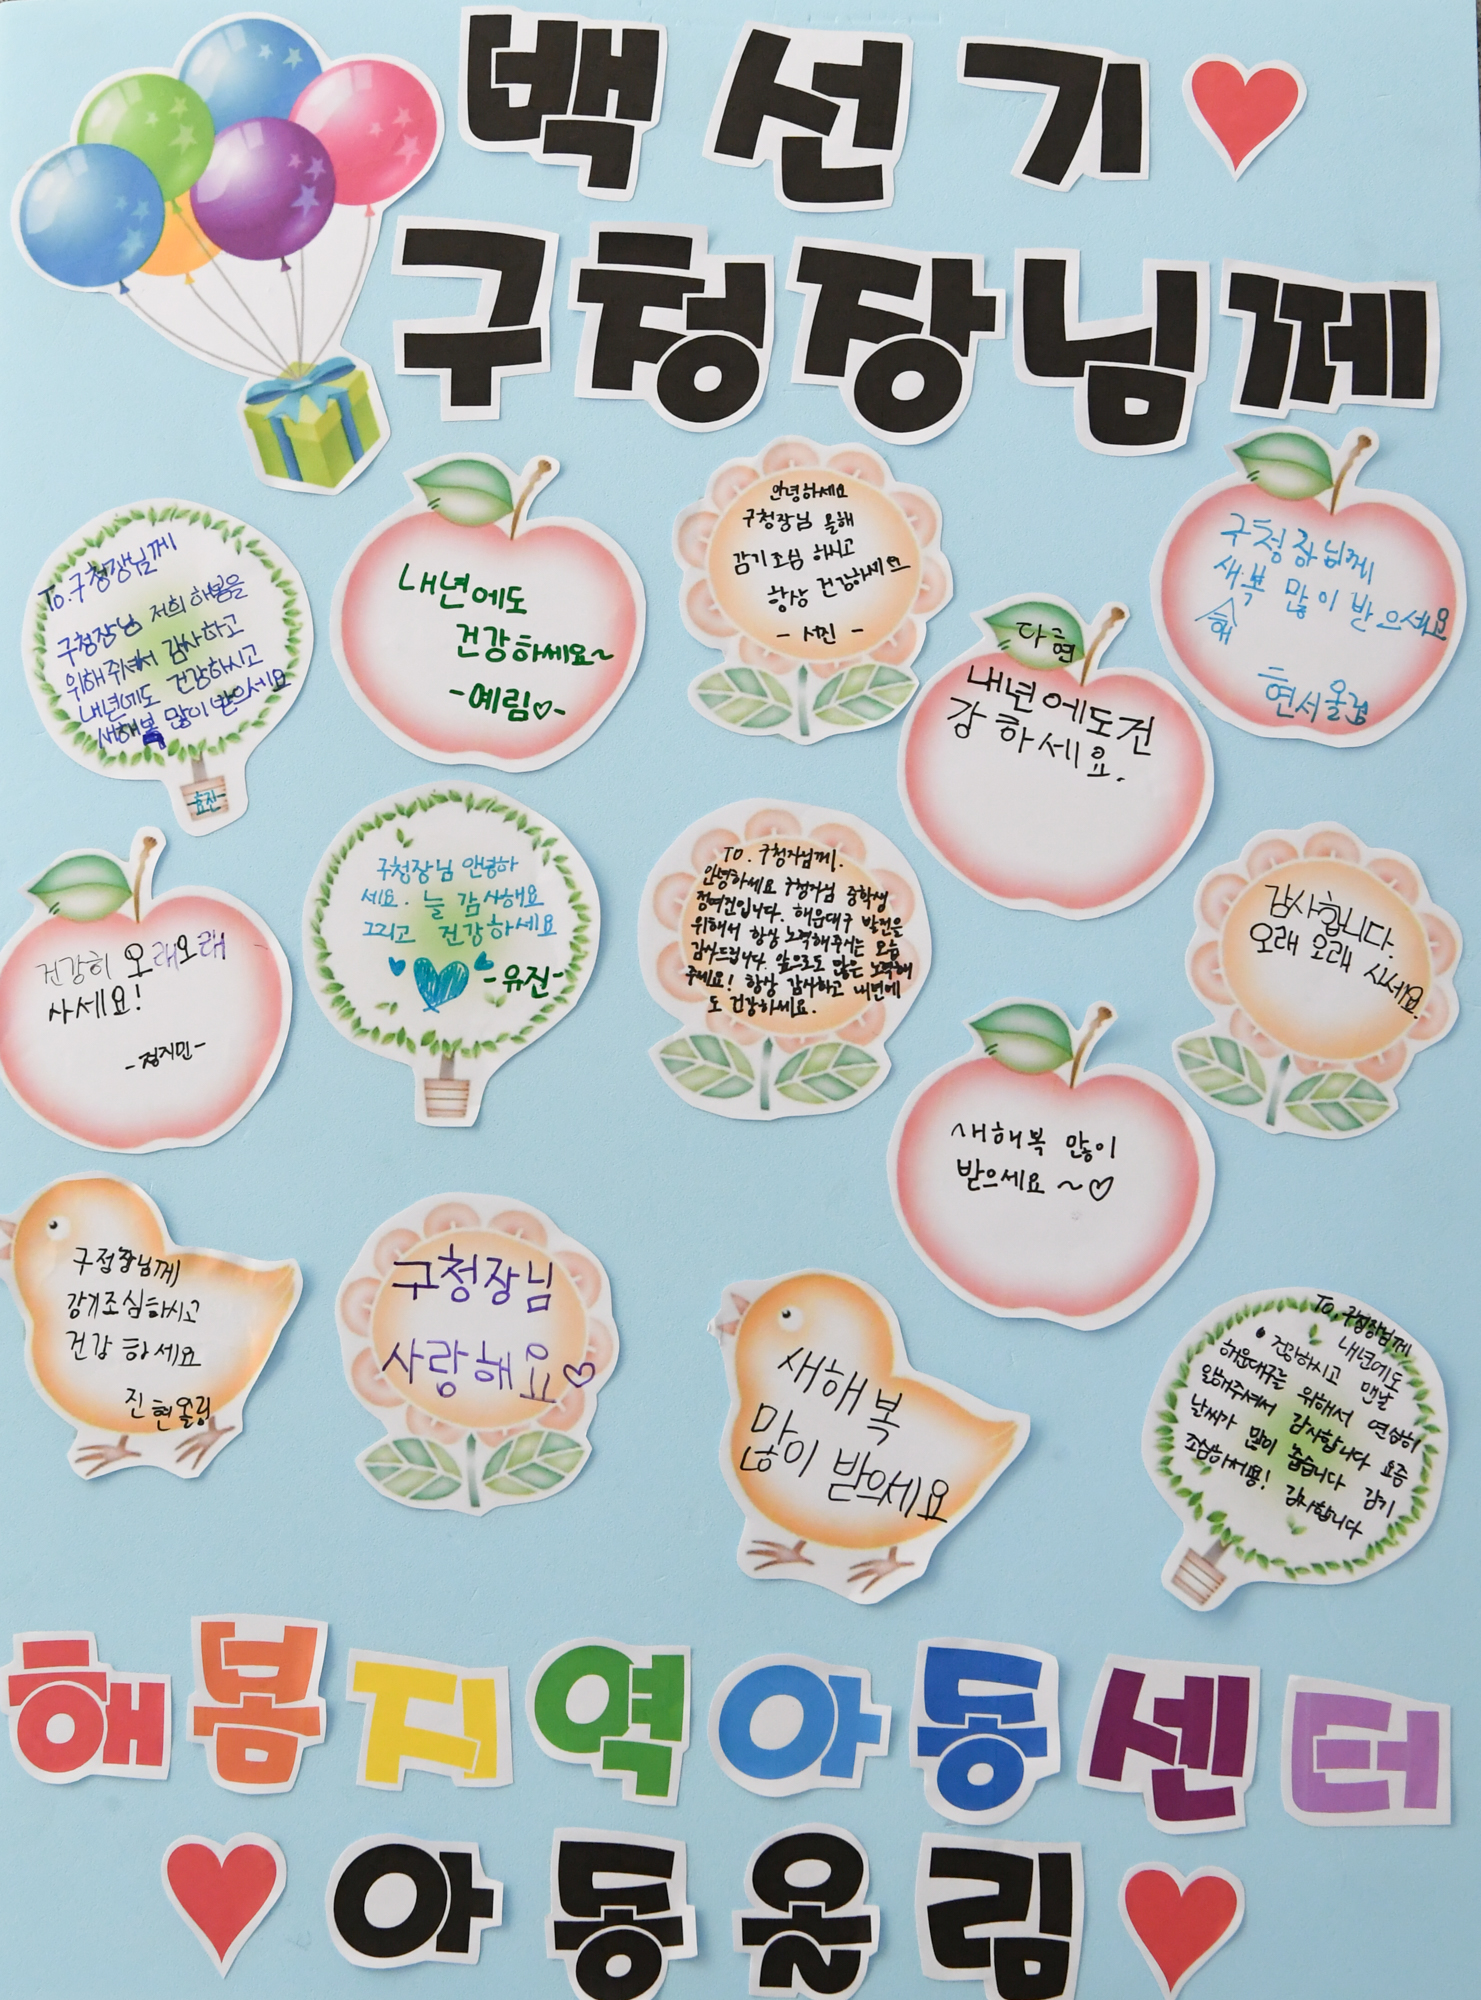 백선기
구청장님께
To. 구청장님께
구청장님 저희 해봄을
위해주셔서 감사하고
내년에도 건강하시고
새해복 많이 받으세요
-효진-
내년에도
건강하세요~
-예림♡-
안녕하세요
구청장님 올해
감기조심 하시고
항상 건강하세요
- 서진 -
다현
내년에도건
강하세요.
구청장님께
새복 많이 받으세요
해
현서올림
건강히 오래오래
사세요!
-정지민-
구청장님 안녕하
세요. 늘 감사해요
그리고 건강하세요
-유진-
To. 구청장님께.
안녕하세요 구청장님 중학생
정여건입니다. 해운대구 발전을
위해서 항상 노력해주시는
감사드립니다. 앞으로도 많은 노력해
주세요! 항상 감사하고 내년에
도 건강하세요.
감사합니다.
오래 오래 사세요.
새해복 많이
받으세요 ~♡
구청장님께
감기조심하시고
건강 하세요
진현올림
구청장님
사랑해요♡
새해복
많이 받으세요
To. 구청장님께
내년에도
건강하시고 맨날
해운대구를 위해서 연심히
일해주셔서 감사합니다 요즘
날씨가 많이 춥습니다 감기
조심하세용! 감사합니다
해봄지역아동센터
아동올림